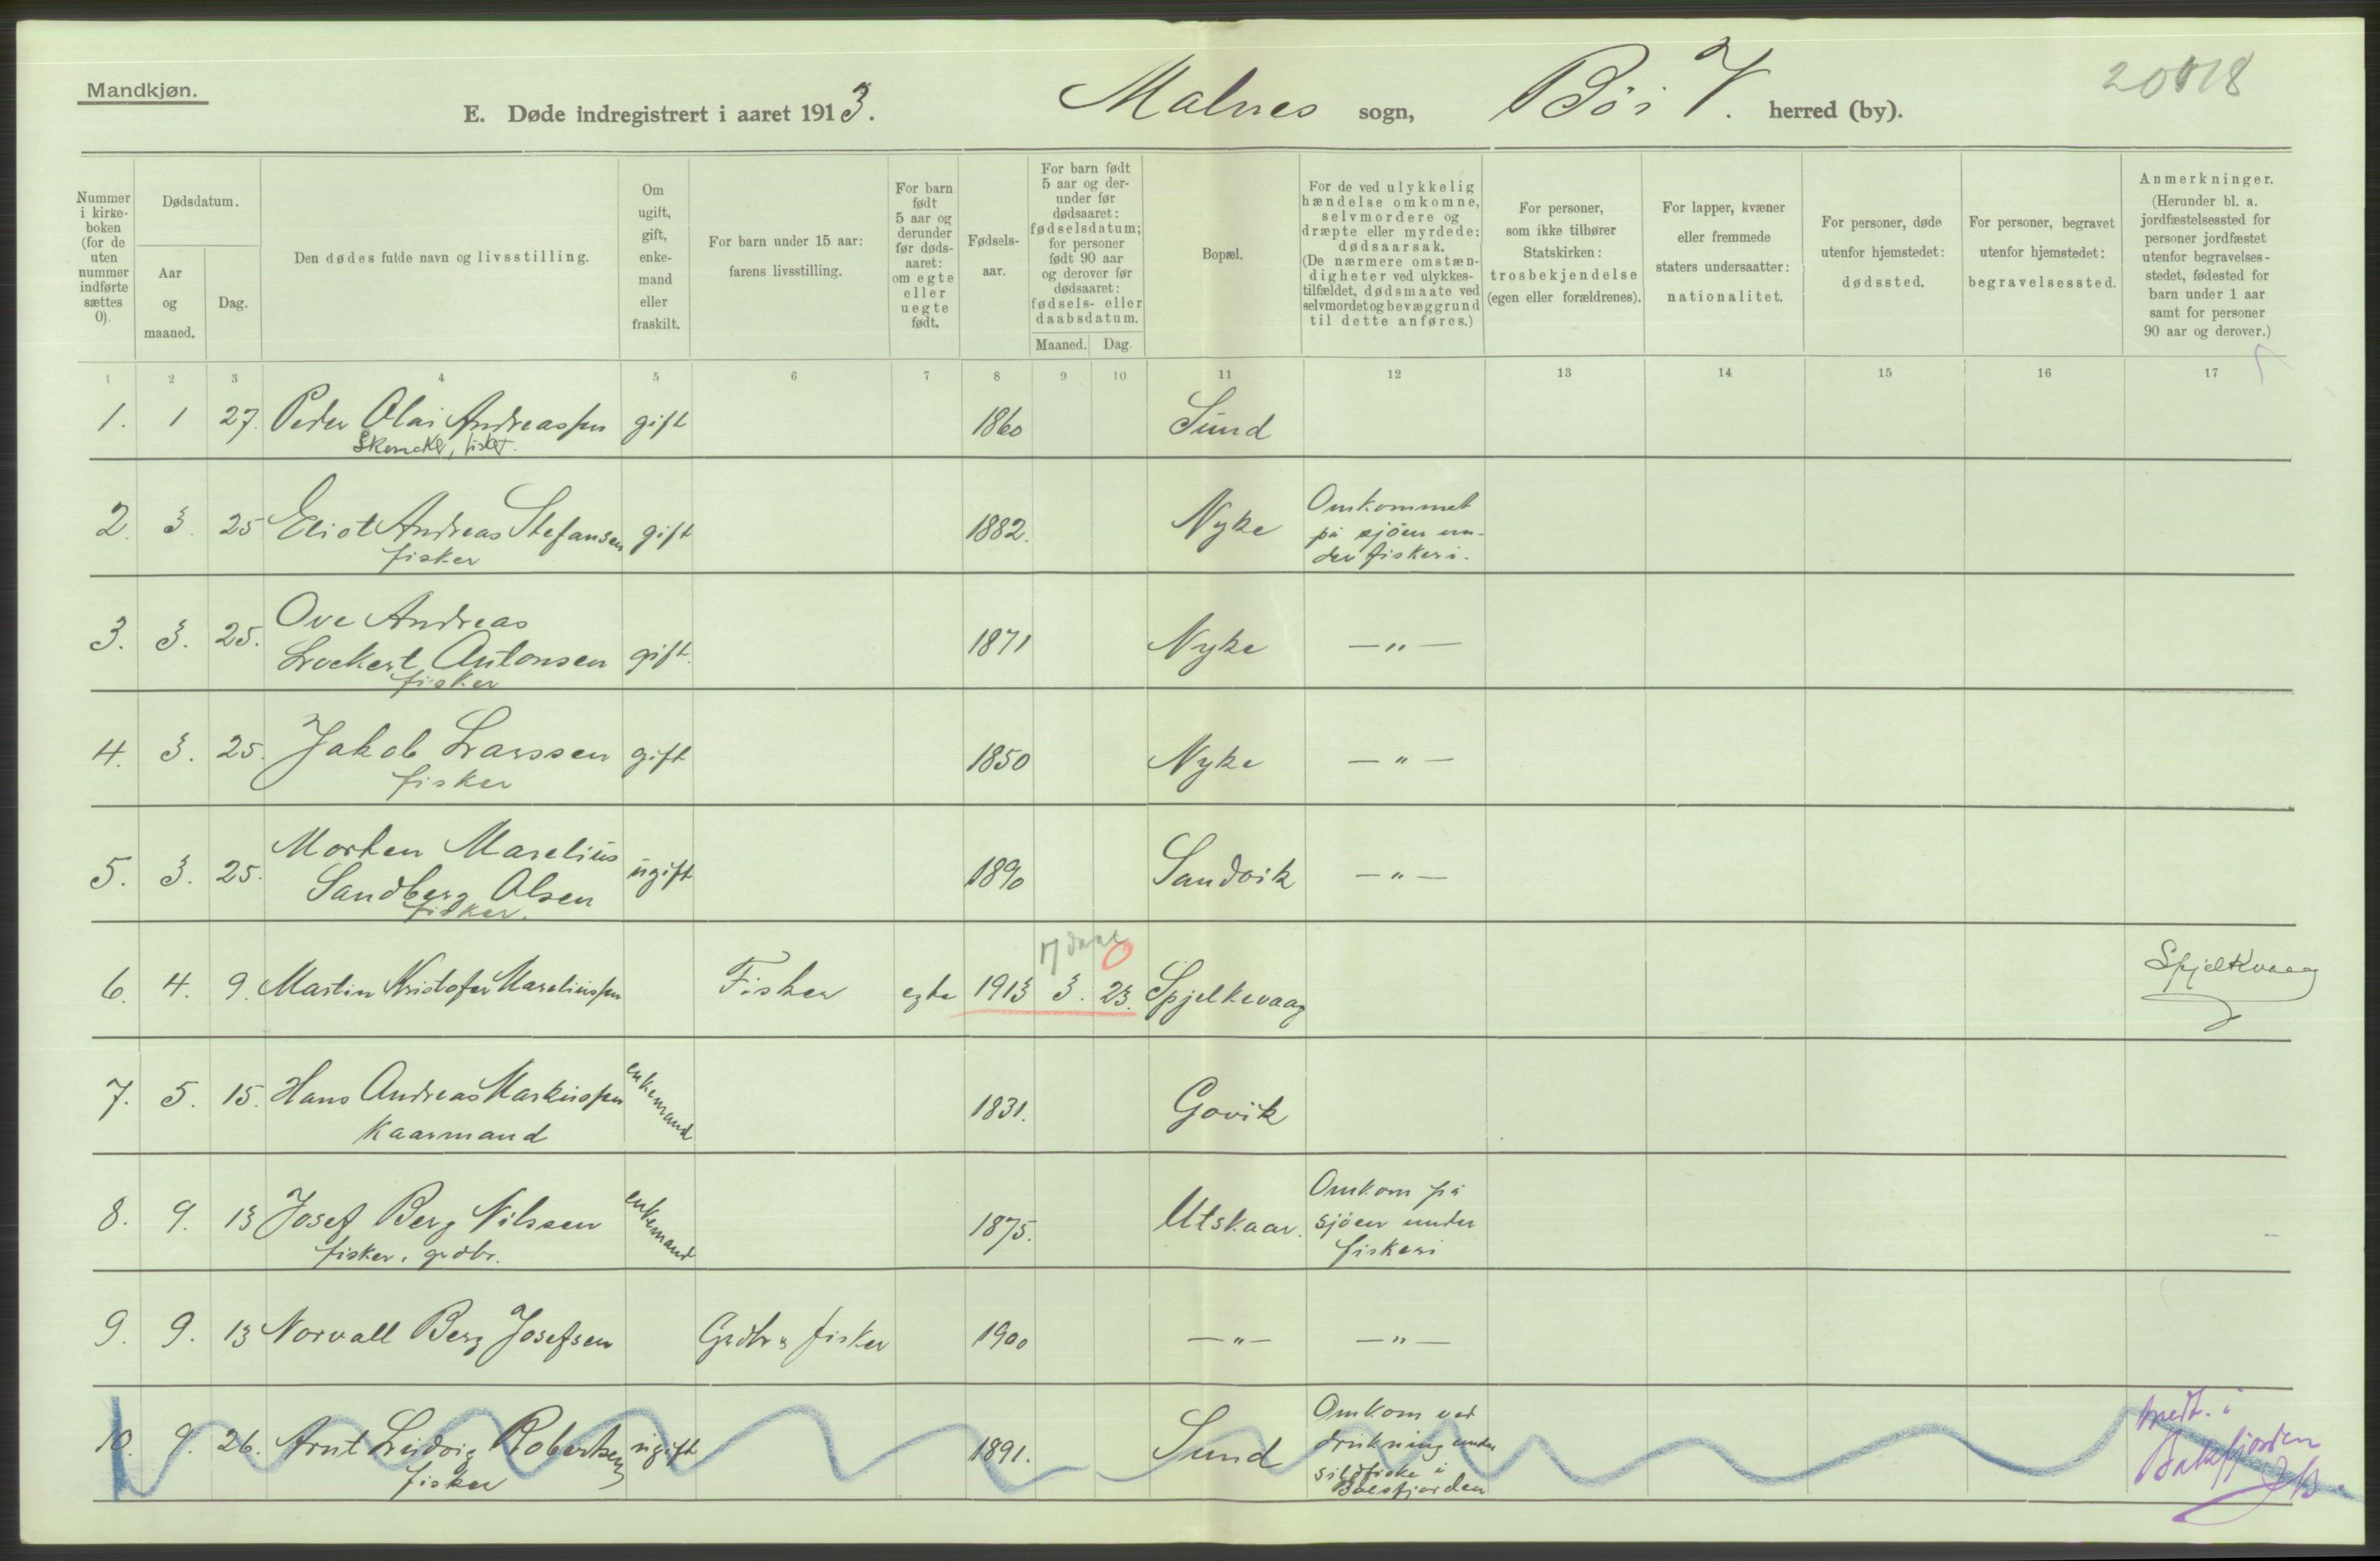 Mandkjøn.
20118
E. Døde indregistrert i aaret 1913. Malnes sogn, Bö i V. herred (by).
Nummer i kirke-boken (for de uten nummer indførte sættes 0).
Dødsdatum.
Aar og maaned.
Dag.
Den dødes fulde navn og livsstilling.
Om ugift, gift, enke-mand eller fraskilt.
For barn under 15 aar: farens livsstilling.
For barn født 5 aar og derunder før døds-aaret: om egte eller uegte født.
Fødsels-aar.
For barn født 5 aar og der-under før dødsaaret: fødselsdatum; for personer født 90 aar og derover før dødsaaret: fødsels- eller daabsdatum.
Maaned. Dag.
Bopæl.
For de ved ulykkelig hændelse omkomne, selvmordere og dræpte eller myrdede: dødsaarsak. (De nærmere omstæn-digheter ved ulykkes-tilfældet, dødsmaate ved selvmordet og bevæggrund til dette anføres.)
For personer, som ikke tilhører Statskirken: trosbekjendelse (egen eller forældrenes).
For lapper, kvæner eller fremmede staters undersaatter: nationalitet.
For personer, døde utenfor hjemstedet: dødssted.
For personer, begravet utenfor hjemstedet: begravelsessted.
Anmerkninger. (Herunder bl. a. jordfæstelsessted for personer jordfæstet utenfor begravelses-stedet, fødested for barn under 1 aar samt for personer 90 aar og derover.)
1 2 3 4 5 6 7 8 9 10 11 12 13 14 15 16 17
1. 1 27. Peder Olai Andreassen gift 1860 Sund
fisker.
2. 3. 25 Eliot Andreas Stefansen gift 1882. Nyke Omkommet
på sjöen un-
fisker der fiskeri.
3. 3. 25. Ove Andreas
Lockert Antonsen gift. 1871 Nyke — „ —
fisker
4. 3. 25. Jakob Larssen gift 1850 Nyke — „ —
fisker
5. 3. 25. Morten Marelius
Sandberg Olsen ugift 1890 Sandvik — „ —
fisker.
17 dage 0
6. 4. 9. Martin Kristofer Mareliussen Fisker egte 1913 3. 23. Spjelkevaag Spjelkvaag
7. 5. 15. Hans Andreas Markussen enkemand 1831. Govik
Kaarmand
8. 9. 13 Josef Berg Nilssen enkemand 1875. Utskaar. Omkom på
sjöen under
fisker, grdbr. fiskeri
9. 9. 13 Norvall Berg Josefsen Grdbr & fisker 1900 — „ — — „ —
10. 9. 26. Arnt Ludvig Robertsen ugift 1891. Sund Omkom ved
drukning under
sildfiske i
fisker
medt. i